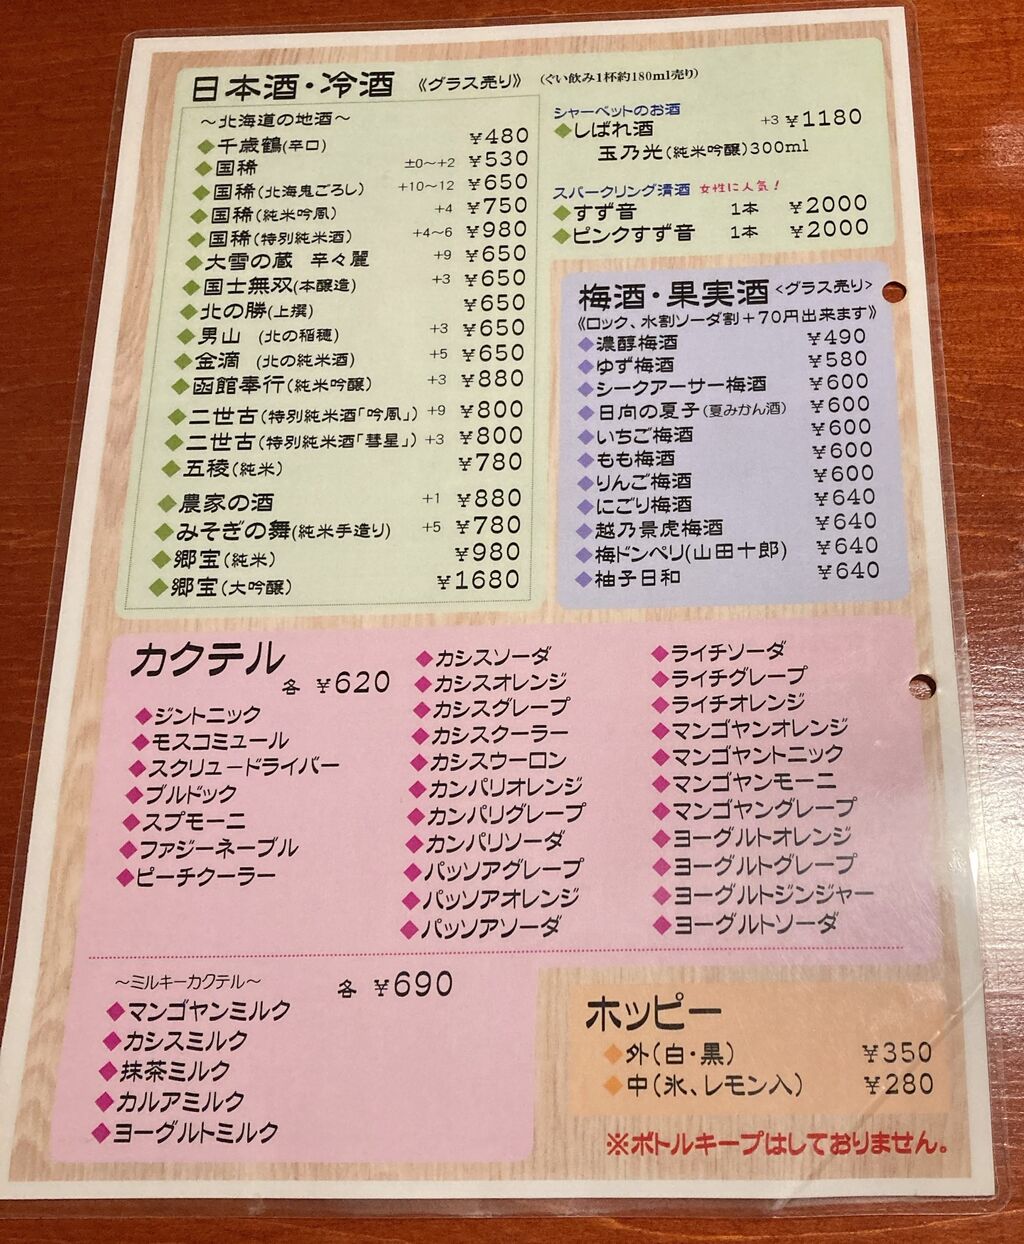 日本酒・冷酒 《グラス売り》 (ぐい飲み1杯約180ml売り)
～北海道の地酒～
◆千歳鶴(辛口) ¥480
◆国稀 ±0～+2 ¥530
◆国稀(北海鬼ごろし) +10～12 ¥650
◆国稀(純米吟風) +4 ¥750
◆国稀(特別純米酒) +4～6 ¥980
◆大雪の蔵 辛々麗 +9 ¥650
◆国士無双(本醸造) +3 ¥650
◆北の勝(上撰) ¥650
◆男山 (北の稲穂) +3 ¥650
◆金滴 (北の純米酒) +5 ¥650
◆函館奉行(純米吟醸) +3 ¥880
◆二世古(特別純米酒「吟風」) +9 ¥800
◆二世古(特別純米酒「彗星」) +3 ¥800
◆五稜(純米) ¥780
◆農家の酒 +1 ¥880
◆みそぎの舞(純米手造り) +5 ¥780
◆郷宝(純米) ¥980
◆郷宝(大吟醸) ¥1680
シャーベットのお酒
◆しばれ酒 +3 ¥1180
玉乃光(純米吟醸)300ml
スパークリング清酒 女性に人気!
◆すず音 1本 ¥2000
◆ピンクすず音 1本 ¥2000
梅酒・果実酒 <グラス売り>
《ロック、水割ソーダ割+70円出来ます》
◆濃醇梅酒 ¥490
◆ゆず梅酒 ¥580
◆シークアーサー梅酒 ¥600
◆日向の夏子(夏みかん酒) ¥600
◆いちご梅酒 ¥600
◆もも梅酒 ¥600
◆りんご梅酒 ¥600
◆にごり梅酒 ¥640
◆越乃景虎梅酒 ¥640
◆梅ドンペリ(山田十郎) ¥640
◆柚子日和 ¥640
カクテル
各 ¥620
◆ジントニック
◆モスコミュール
◆スクリュードライバー
◆ブルドック
◆スプモーニ
◆ファジーネーブル
◆ピーチクーラー
◆カシスソーダ
◆カシスオレンジ
◆カシスグレープ
◆カシスクーラー
◆カシスウーロン
◆カンパリオレンジ
◆カンパリグレープ
◆カンパリソーダ
◆パッソアグレープ
◆パッソアオレンジ
◆パッソアソーダ
◆ライチソーダ
◆ライチグレープ
◆ライチオレンジ
◆マンゴヤンオレンジ
◆マンゴヤントニック
◆マンゴヤンモーニ
◆マンゴヤングレープ
◆ヨーグルトオレンジ
◆ヨーグルトグレープ
◆ヨーグルトジンジャー
◆ヨーグルトソーダ
～ミルキーカクテル～ 各 ¥690
◆マンゴヤンミルク
◆カシスミルク
◆抹茶ミルク
◆カルアミルク
◆ヨーグルトミルク
ホッピー
◆外(白・黒) ¥350
◆中(氷、レモン入) ¥280
※ボトルキープはしておりません。